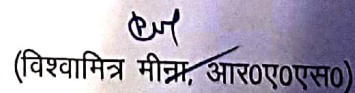 (विश्वामित्र मीना, आर०ए०एस०)